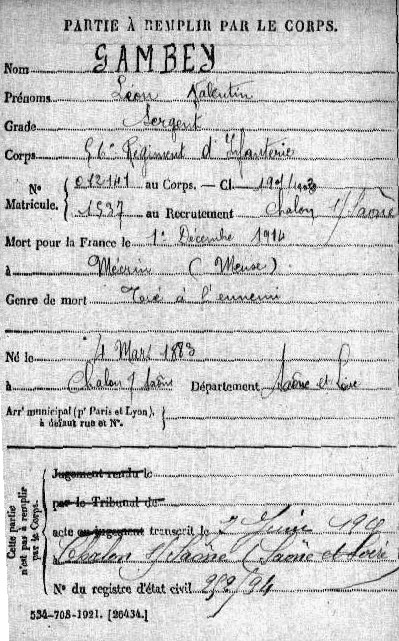 PARTIE À REMPLIR PAR LE CORPS.
Nom GAMBEY
Prénoms Léon Valentin
Grade Sergent
Corps 56e Régiment d'Infanterie
N° Matricule. { 012141 au Corps. — Cl. 1901/1903
1337 au Recrutement Chalon s/Saône
Mort pour la France le 1er Décembre 1914
à Mécrin (Meuse)
Genre de mort Tué à l'ennemi
Né le 4 Mars 1883
à Chalon s/Saône Département Saône et Loire
Arrt municipal (pr Paris et Lyon), à défaut rue et N°.
Cette partie n'est pas à remplir par le Corps.
Jugement rendu le
par le Tribunal de
acte ou jugement transcrit le 2 Juin
à Chalon s/Saône (Saône et Loire)
N° du registre d'état civil 292/94
534-708-1921. [26434.]